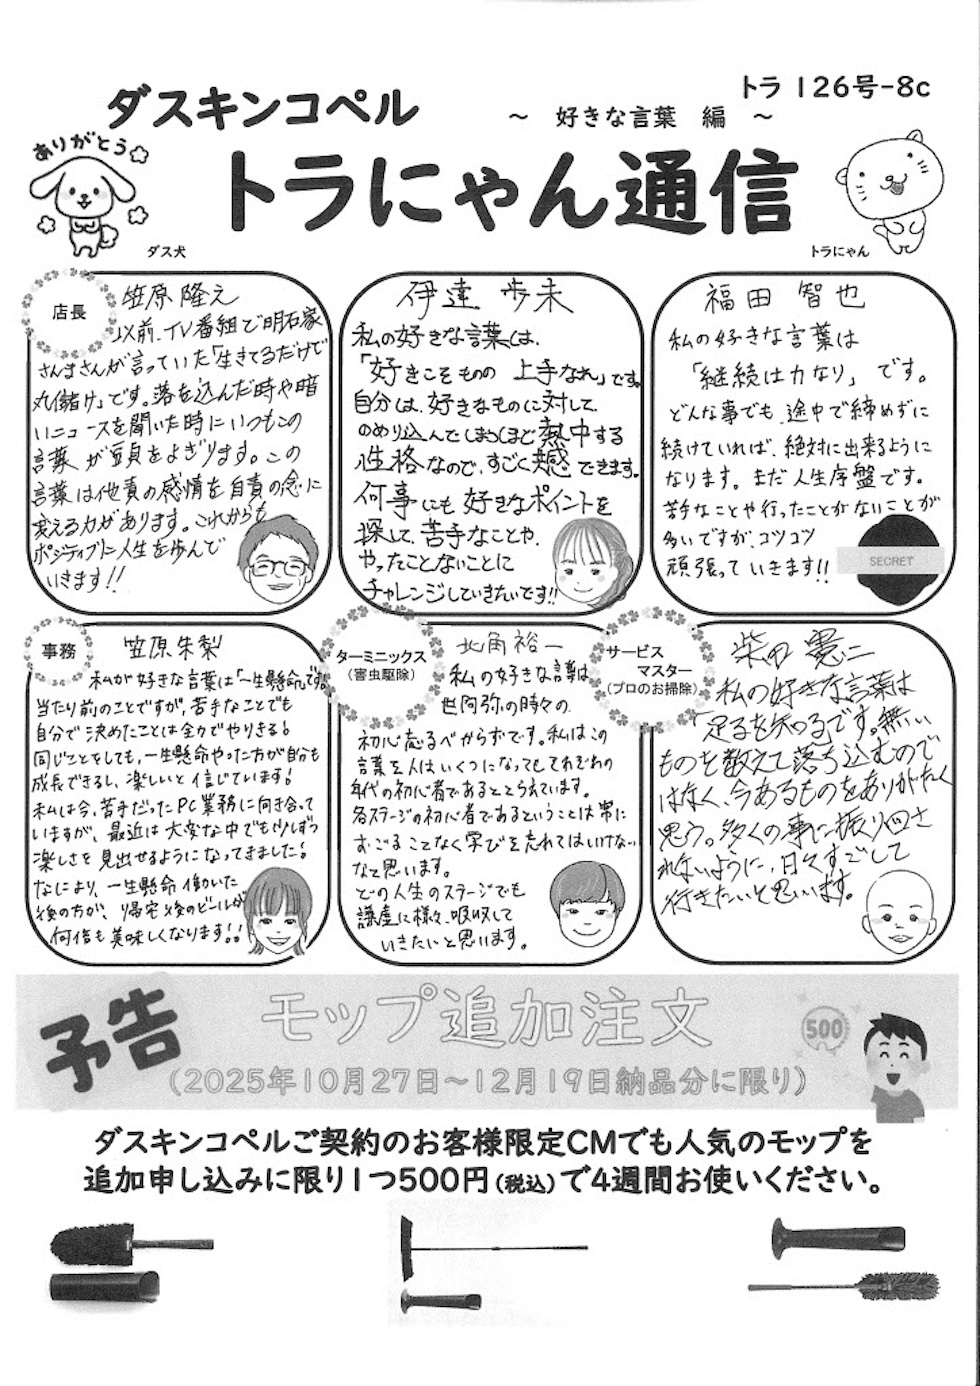 トラ 126号-8c
ダスキンコペル
～ 好きな言葉 編 ～
ありがとう
トラにゃん通信
ダス犬
トラにゃん
店長
笠原 隆之
以前、TV番組で明石家
さんまさんが言っていた「生きてるだけで
丸儲け」です。落ち込んだ時や暗
いニュースを聞いた時にいつもこの
言葉が頭をよぎります。この
言葉は他責の感情を自責の念に
変える力があります。これからも
ポジティブに人生を歩んで
いきます!!
伊達 歩未
私の好きな言葉は、
「好きこそものの 上手なれ」です。
自分は、好きなものに対して、
のめり込んでしまうほど熱中する
性格なので、すごく共感できます。
何事にも好きなポイントを
探して、苦手なことや、
やったことないことに
チャレンジしていきたいです!!
福田 智也
私の好きな言葉は
「継続は力なり」です。
どんな事でも、途中で締めずに
続けていれば、絶対に出来るように
なります。まだ人生序盤です。
苦手なことや行ったことがないことが
多いですが、コツコツ
頑張っていきます!!
SECRET
事務
笠原朱梨
私が好きな言葉は「一生懸命」です。
当たり前のことですが、苦手なことでも
自分で決めたことは全力でやりきる!
同じことをしても、一生懸命やった方が自分も
成長できるし、楽しいと信じています!
私は今、苦手だったPC業務に向き合って
いますが、最近は大変な中でも少しずつ
楽しさを見出せるようになってきました!
なにより、一生懸命働いた
後の方が、帰宅後のビールが
何倍も美味しくなります!!
ターミニックス
(害虫駆除)
北角 裕一
私の好きな言葉は
世阿弥の時々の
初心忘るべからずです。私はこの
言葉を人はいくつになってもそれぞれの
年代の初心者であるととらえています。
各ステージの初心者であるということは常に
おごることなく学びを忘れてはいけない
なと思います。
どの人生のステージでも
謙虚に様々、吸収して
いきたいと思います。
サービス
マスター
(プロのお掃除)
柴田 憲二
私の好きな言葉は
「足るを知る」です。無い
ものを数えて落ち込むので
はなく、今あるものをありがたく
思う。多くの事に振り回さ
れないように、日々すごして
行きたいと思います。
予告
モップ追加注文
500
(2025年10月27日～12月19日納品分に限り)
ダスキンコペルご契約のお客様限定CMでも人気のモップを
追加申し込みに限り1つ500円(税込)で4週間お使いください。